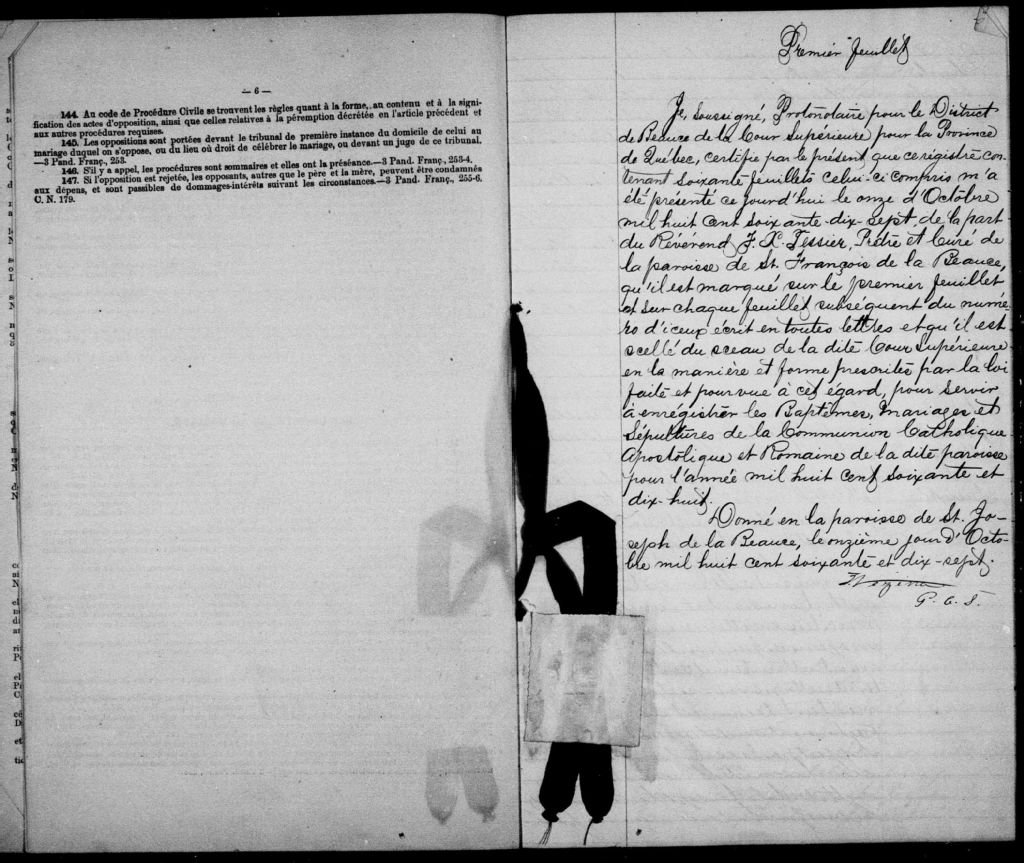 — 6 —
144. Au code de Procédure Civile se trouvent les règles quant à la forme, au contenu et à la signi-
fication des actes d'opposition, ainsi que celles relatives à la péremption décrétée en l'article précédent et
aux autres procédures requises.
145. Les oppositions sont portées devant le tribunal de première instance du domicile de celui au
mariage duquel on s'oppose, ou du lieu où droit de célébrer le mariage, ou devant un juge de ce tribunal.
—3 Pand. Franç., 253.
146. S'il y a appel, les procédures sont sommaires et elles ont la préséance.—3 Pand. Franç., 253-4.
147. Si l'opposition est rejetée, les opposants, autres que le père et la mère, peuvent être condamnés
aux dépens, et sont passibles de dommages-intérêts suivant les circonstances.—3 Pand. Franç., 255-6.
C. N. 179.
Premier feuillet
Je, soussigné, Protonotaire pour le District
de Beauce de la Cour Supérieure pour la Province
de Québec, certifie par le présent que ce régistre con-
tenant soixante feuillets celui-ci compris m'a
été présenté ce jourd'hui le onze d'Octobre
mil huit cent soixante dix-sept, de la part
du Révérend F. X. Tessier, Prêtre et Curé de
la paroisse de St. François de la Beauce,
qu'il est marqué sur le premier feuillet
et sur chaque feuillet subséquent du numé-
ro d'iceux écrit en toutes lettres et qu'il est
scellé du sceau de la dite Cour Supérieure
en la manière et forme prescrites par la loi
faite et pourvue à cet égard, pour servir
à enrégistrer les Baptêmes, Mariages et
Sépultures de la Communion Catholique
Apostolique et Romaine de la dite paroisse
pour l'année mil huit cent soixante et
dix-huit.
Donné en la paroisse de St. Jo-
seph de la Beauce, le onzième jour d'Octo-
bre mil huit cent soixante et dix-sept.
P. C. S.